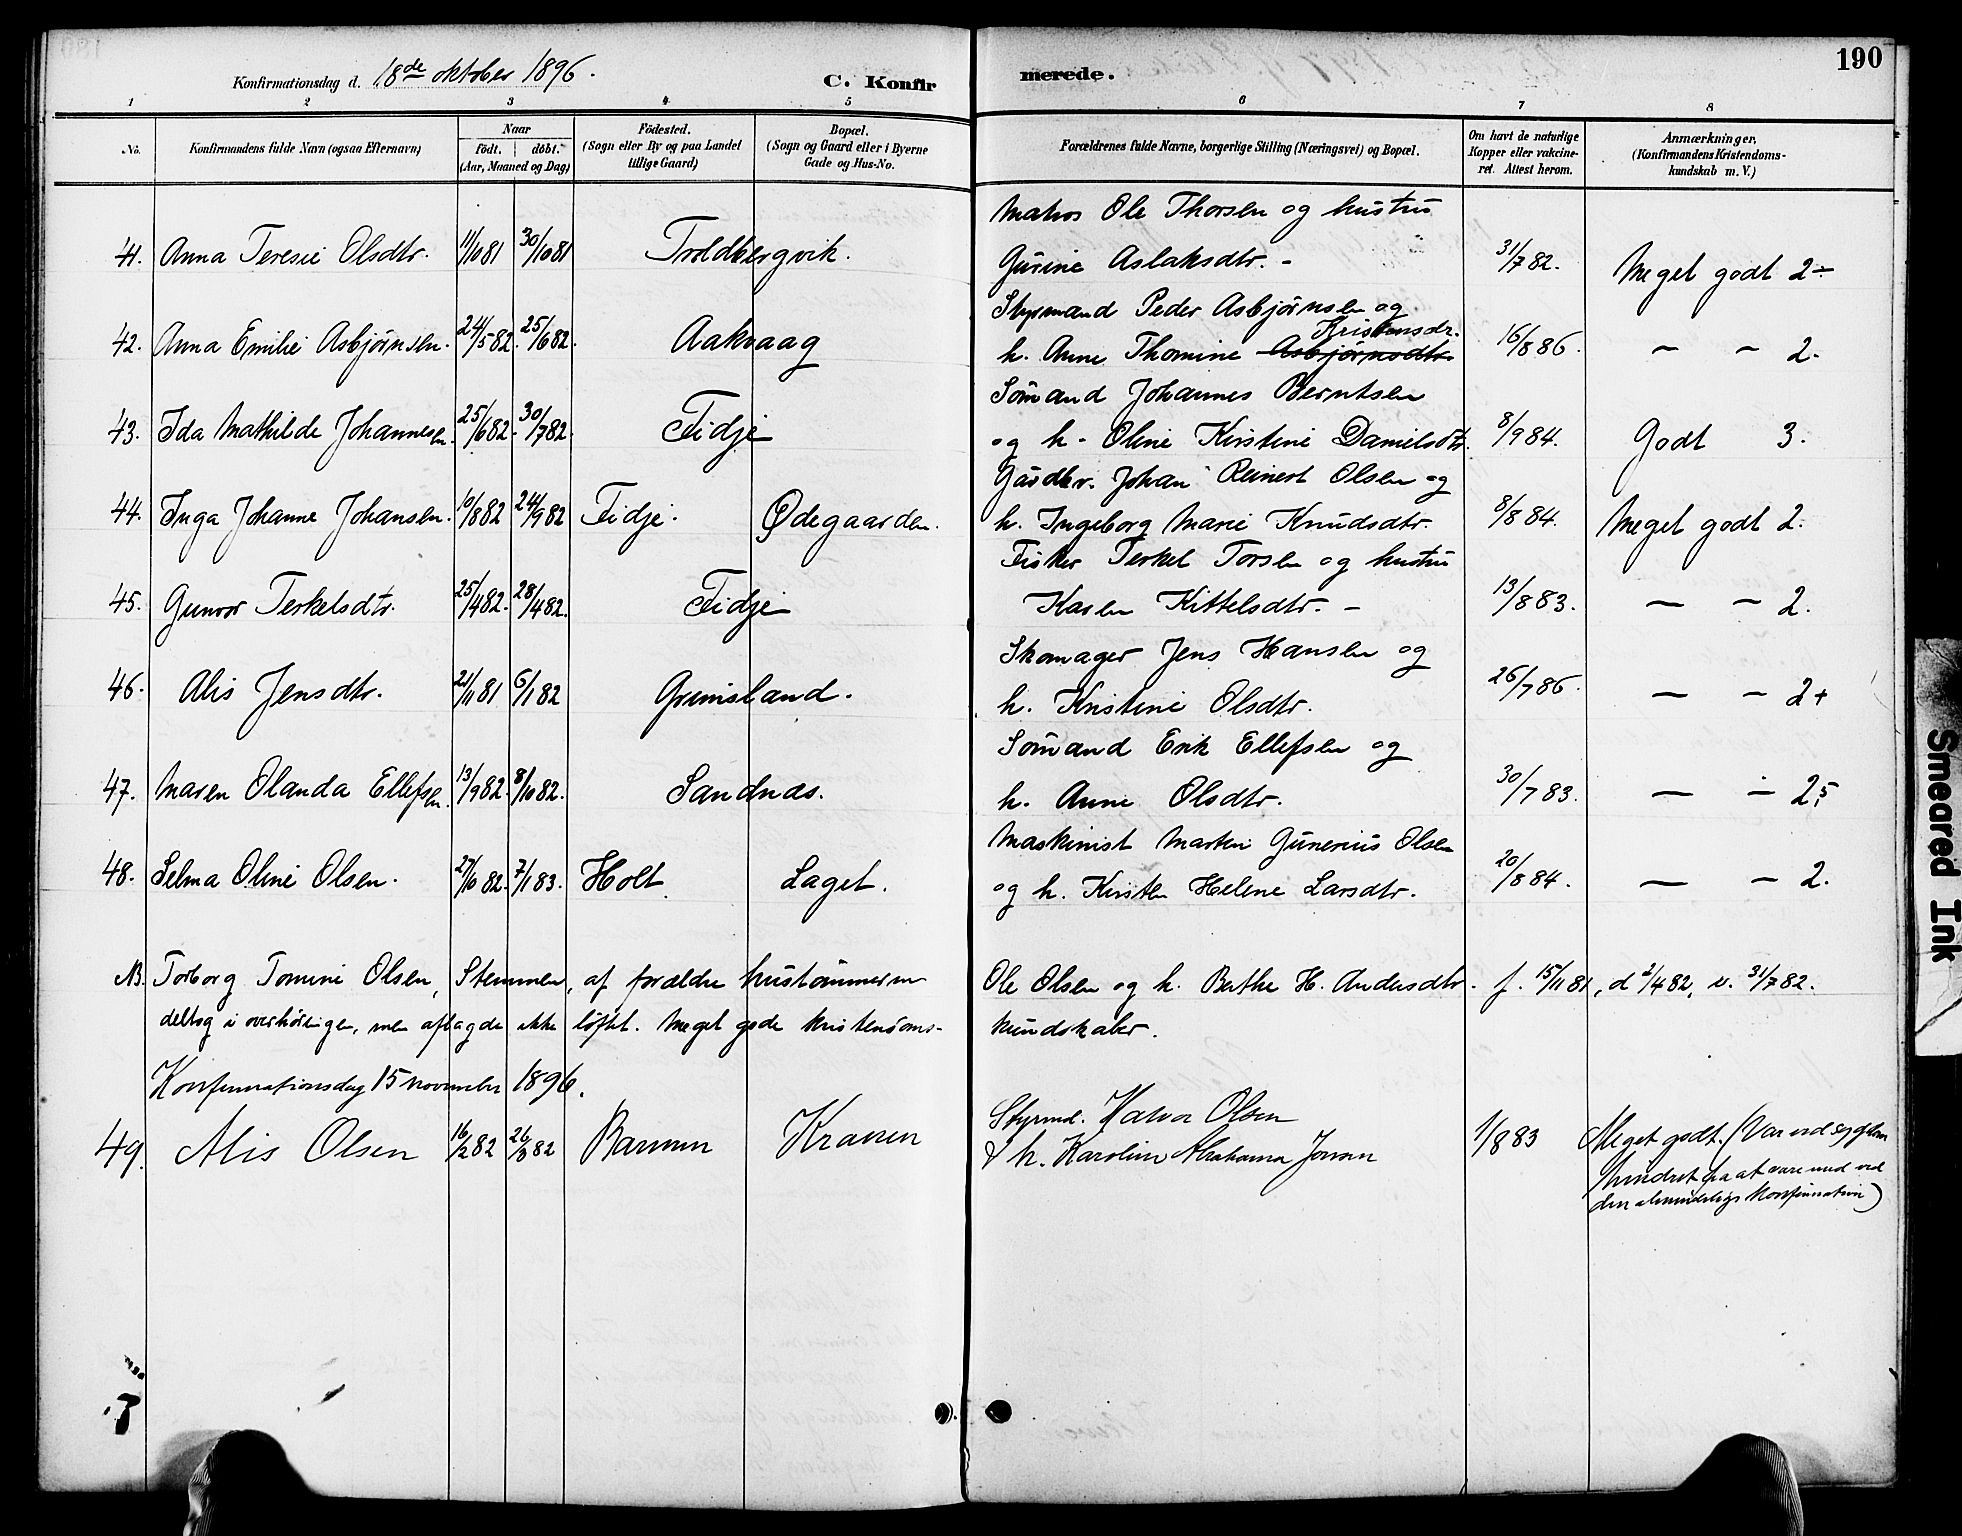 190
Konfirmationsdag d. 18de oktober 1896. C. Konfirmerede.
1 2 3 4 5 6 7 8
No. Konfirmandens fulde Navn (ogsaa Efternavn) Naar födt. döbt. (Aar, Maaned og Dag) Födested. (Sogn eller By og paa Landet tillige Gaard) Bopæl. (Sogn og Gaard eller i Byerne Gade og Hus-No. Forældrenes fulde Navne, borgerlige Stilling (Næringsvei) og Bopæl. Om havt de naturlige Kopper eller vakcineret. Attest herom. Anmærkninger. (Konfirmandens Kristendomskundskab m. V.)
Matros Ole Thorsen og hustru
41. Anna Teresie Olsdtr. 11/10 81 30/10 81 Troldbergvik. Gurine Aslaksdtr. - 31/7 82. Meget godt 2÷
Styrmand Peder Asbjørnsen og
Kristensdr.
42. Anna Emilie Asbjørnsen. 24/5 82. 25/6 82. Aakvaag h. Anne Thomine Asbjørnsdtr. 16/8 86. — – 2.
Sømand Johannes Berntsen
43. Ida Mathilde Johannesen. 25/6 82. 30/7 82. Fidje og h. Oline Kirstine Danielsdtr. 8/9 84. Godt 3.
Gårdbr. Johan Reinert Olsen og
44. Inga Johanne Johansen. 10/8 82 24/9 82 Fidje. Ødegaarden. h. Ingeborg Marie Knudsdtr. 8/8 84. Meget godt 2.
Fisker Terkel Torsen og hustru
45. Gunvor Terkelsdtr. 25/4 82. 28/4 82. Fidje Karen Kittelsdtr. – 13/8 83. — – 2.
Skomager Jens Hansen og
46. Alis Jensdtr. 21/11 81 6/1 82 Grimsland. h. Kristine Olsdtr. 26/7 86. — – 2+
Sømand Erik Ellefsen og
47. Maren Olanda Ellefsen. 13/9 82. 8/10 82. Sandnæs. h. Anne Olsdtr. 30/7 83. — – 2,5
Maskinist Martin Gunerius Olsen
48. Selma Oline Olsen. 27/10 82. 7/1 83. Holt. Laget. og h. Kirsten Helene Larsdtr. 20/8 84. — – 2.
NB. Torborg Tomine Olsen, Stemmen, af forældre hustømmerm Ole Olsen og h. Berthe H. Andersdtr. f. 15/11 81, d 2/4 82, v. 31/7 82.
deltog i overhøringen, men aflagde ikke løftet. Meget gode kristendoms- kundskaber.
Konfirmationsdag 15 november 1896.
Styrmd. Halvor Olsen
49. Alis Olsen 16/2 82 26/3 82 Barmen Kranen & h. Karoline Abrahama Jonsen 1/8 83 Meget godt. (Var ved sygdom
hindret fra at være med ved
den almindelige konfirmation)
Smeared Ink